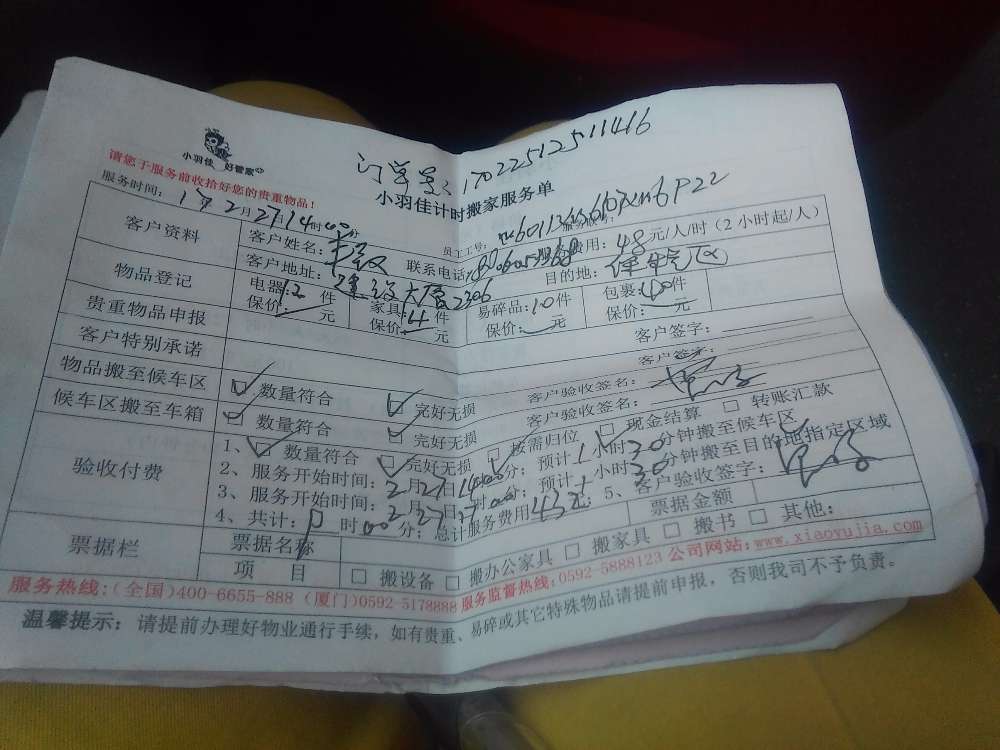 小羽佳 好管家
订单号：17022512511416
请您于服务前收拾好您的贵重物品！
小羽佳计时搬家服务单
服务时间：17年2月27日14时00分 员工工号：
客户资料 客户姓名： 联系电话： 费用：48元/人/时（2小时起/人）
客户地址：建设大厦2306 目的地：
物品登记 电器：12件 家具：4件 易碎品：10件 包裹：40件
保价： 元 保价： 元 保价： 元
贵重物品申报 客户签字：
客户特别承诺 客户签字：
物品搬至候车区 ☑ 数量符合 ☑ 完好无损 客户验收签名：
候车区搬至车箱 ☑ 数量符合 ☑ 完好无损 客户验收签名：
验收付费 1、☑ 数量符合 ☑ 完好无损 ☑ 按需归位 □ 现金结算 □ 转账汇款
2、服务开始时间：2月27日14时00分；预计1小时30分钟搬至候车区
3、服务开始时间：2月27日17时00分；预计 小时30分钟搬至目的地指定区域
4、共计： 时00分；总计服务费用 元；5、客户验收签字：
票据栏 票据名称 票据金额
项 目 □ 搬设备 □ 搬办公家具 □ 搬家具 □ 搬书 □ 其他：
服务热线：（全国）400-6655-888（厦门）0592-5178888 服务监督热线：0592-5888123 公司网站：www.xiaoyujia.com
温馨提示：请提前办理好物业通行手续，如有贵重、易碎或其它特殊物品请提前申报，否则我司不予负责。